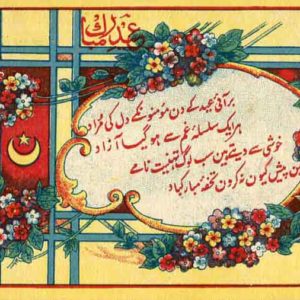 عید مبارک
بر آئی عید کے دن مومنونکے دل کی مراد
ہر ایک سلسلۂ غم سے ہو گیا آزاد
خوشی سے دیتے ہیں سب لوگ تہنیت نامے
پیش کیوں نہ کروں تحفۂ مبارکباد